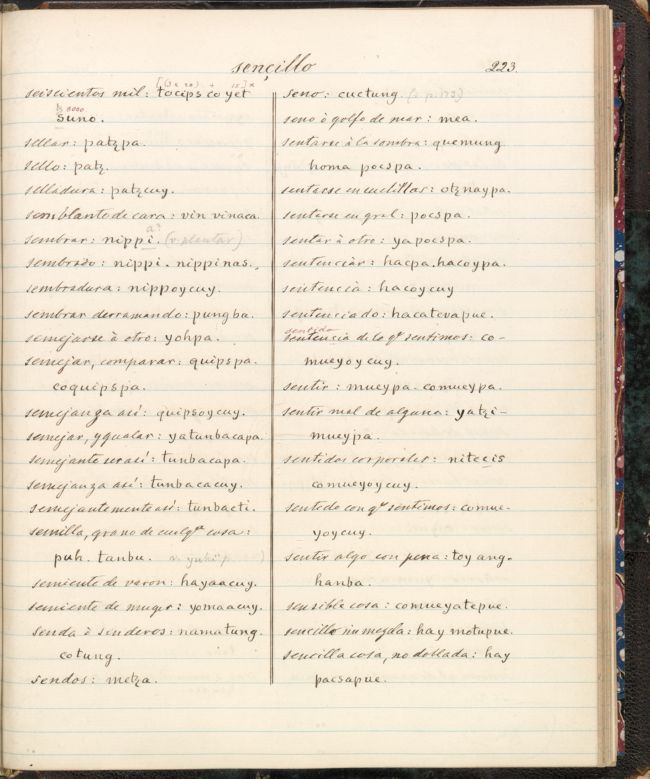 sençillo 223
[(3x20) + 15] x
seiscientos mil: tocipscoyet
8000
suno.
sellar: patzpa.
sello: patz.
selladura: patzcuy.
semblante de cara: vin vinaca.
a?
sembrar: nippi. (v. plantar)
sembrado: nippi. nippinas.
sembradura: nippoycuy.
sembrar derramando: pungba.
semejarse à otro: yohpa.
semejar, comparar: quipspa.
coquipspa.
semejanza así: quipsoycuy.
semejar, ygualar: yatunbacapa.
semejante ser así: tunbacapa.
semejanza así: tunbacacuy.
semejantemente así: tunbacti.
semilla, grano de cualqr cosa:
puh. tanbu.
semiente de varon: hayaacuy.
semiente de muger: yomaacuy.
senda ò senderos: namatung.
cotung.
sendos: metza.
seno: cuctung. (v. p. 173)
seno ò golfo de mar: mea.
sentarse à la sombra: quemung
homa pocspa.
sentarse en cuclillas: otznaypa.
sentarse en gral: pocspa.
sentar à otro: yapocspa.
sentenciàr: hacpa. hacoypa.
sentencià: hacoycuy
sentenciado: hacatevapue.
sentido
sentencia de lo qe sentimos: co-
mueyoycuy.
sentir: mueypa. comueypa.
sentir mal de alguno: yatzi-
mueypa.
sentidos corporales: nitecis
comueyoycuy.
sentido con qe sentimos: comue-
yoycuy.
sentir algo con pena: toyang-
hanba.
sensible cosa: comueyatepue.
sencillo inmezda: hay motupue.
sencilla cosa, no doblada: hay
pacsapue.